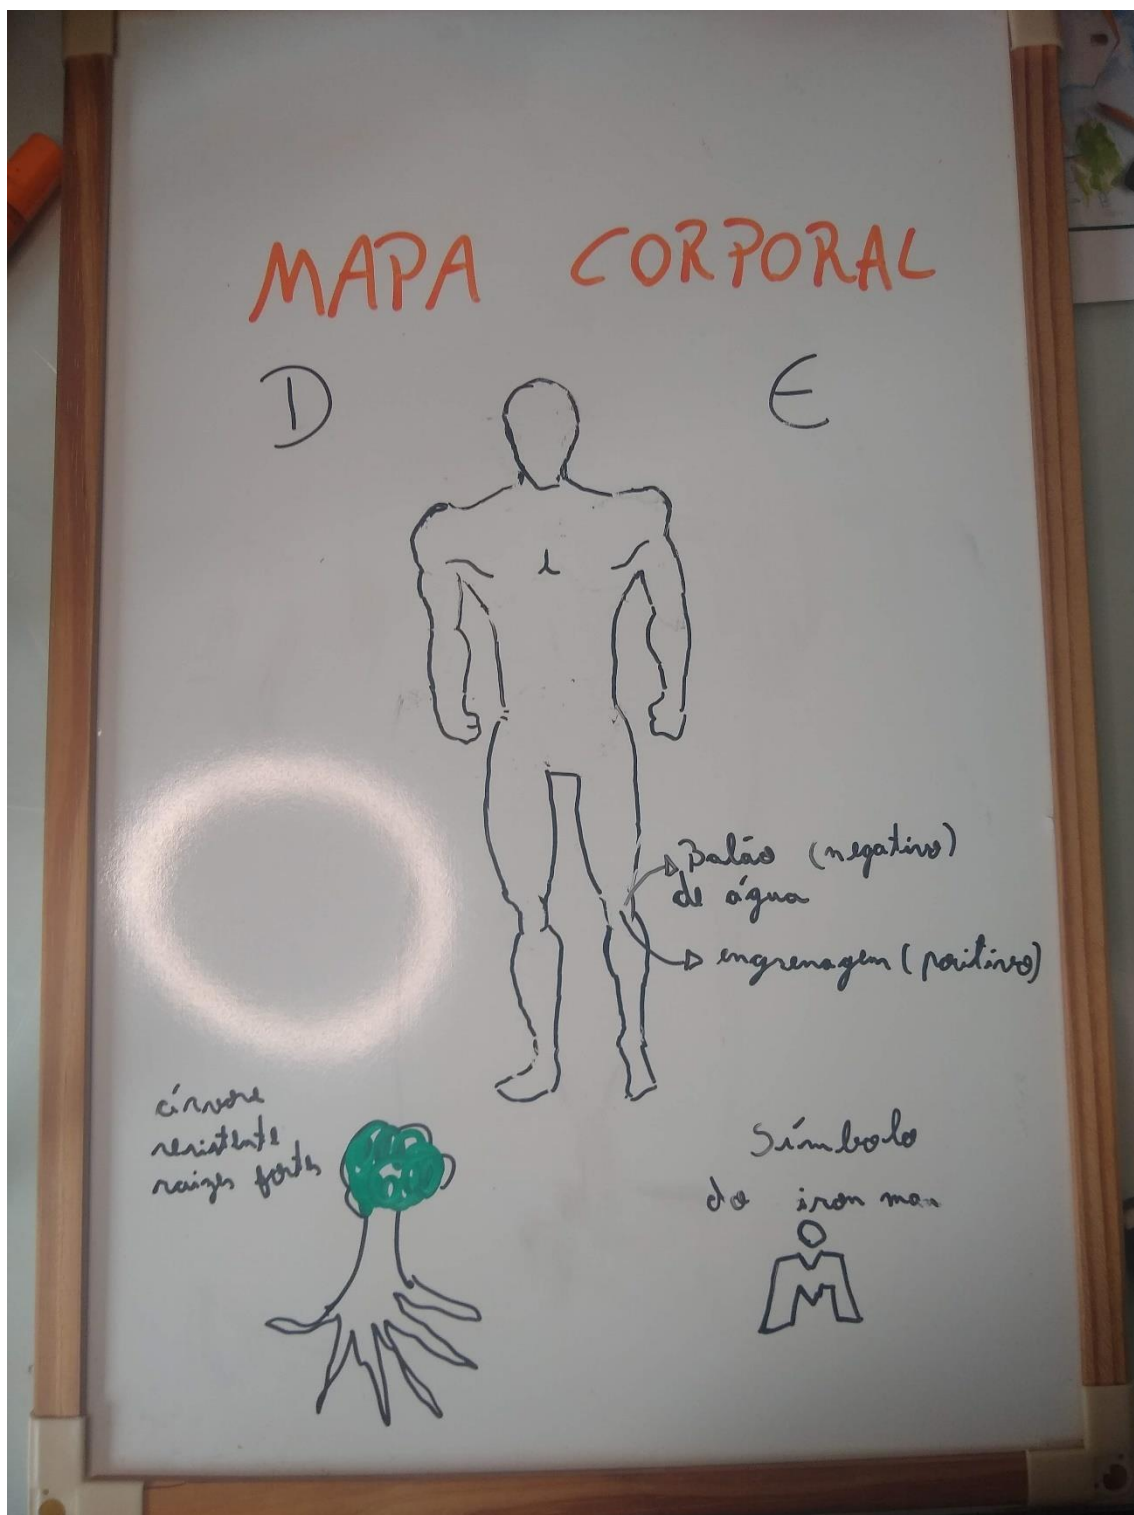 MAPA CORPORAL
D E
Balão (negativo)
de água
engrenagem (positivo)
árvore
resistente
raizes fortes
Símbolo
do iron man